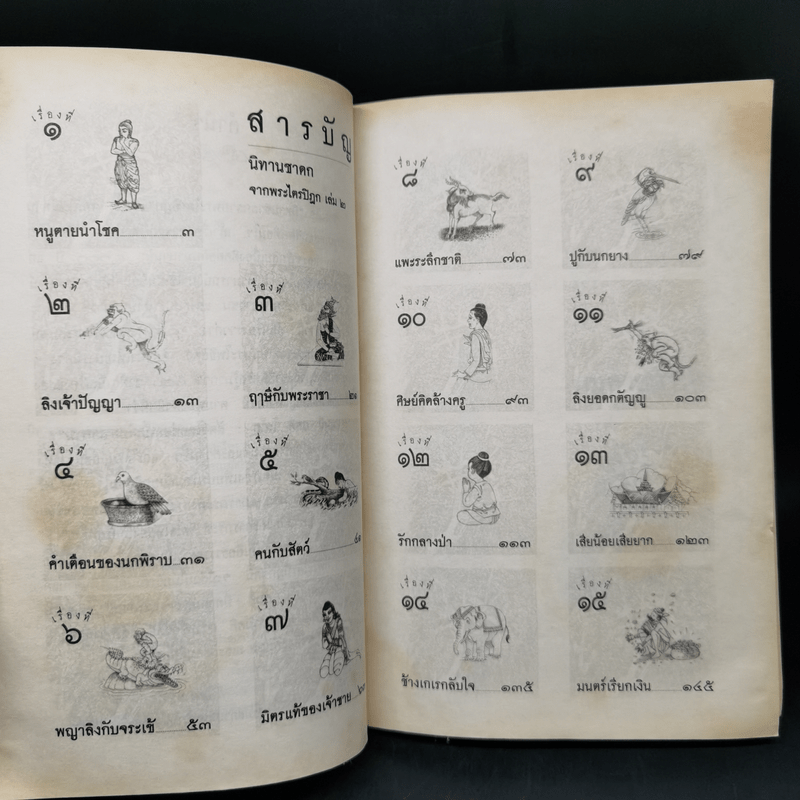 สารบัญ
นิทานชาดก
จากพระไตรปิฎก เล่ม ๒
เรื่องที่
๑
หนูตายนำโชค ๓
เรื่องที่
๒
ลิงเจ้าปัญญา ๑๓
เรื่องที่
๓
ฤๅษีกับพระราชา
เรื่องที่
๔
คำเตือนของนกพิราบ ๓๑
เรื่องที่
๕
คนกับสัตว์
เรื่องที่
๖
พญาลิงกับจระเข้ ๕๓
เรื่องที่
๗
มิตรแท้ของเจ้าชาย
เรื่องที่
๘
แพะระลึกชาติ ๗๓
เรื่องที่
๙
ปูกับนกยาง ๗๙
เรื่องที่
๑๐
ศิษย์คิดล้างครู ๙๓
เรื่องที่
๑๑
ลิงยอดกตัญญู ๑๐๓
เรื่องที่
๑๒
รักกลางป่า ๑๑๓
เรื่องที่
๑๓
เสียน้อยเสียยาก ๑๒๓
เรื่องที่
๑๔
ช้างเกเรกลับใจ ๑๓๕
เรื่องที่
๑๕
มนตร์เรียกเงิน ๑๔๕